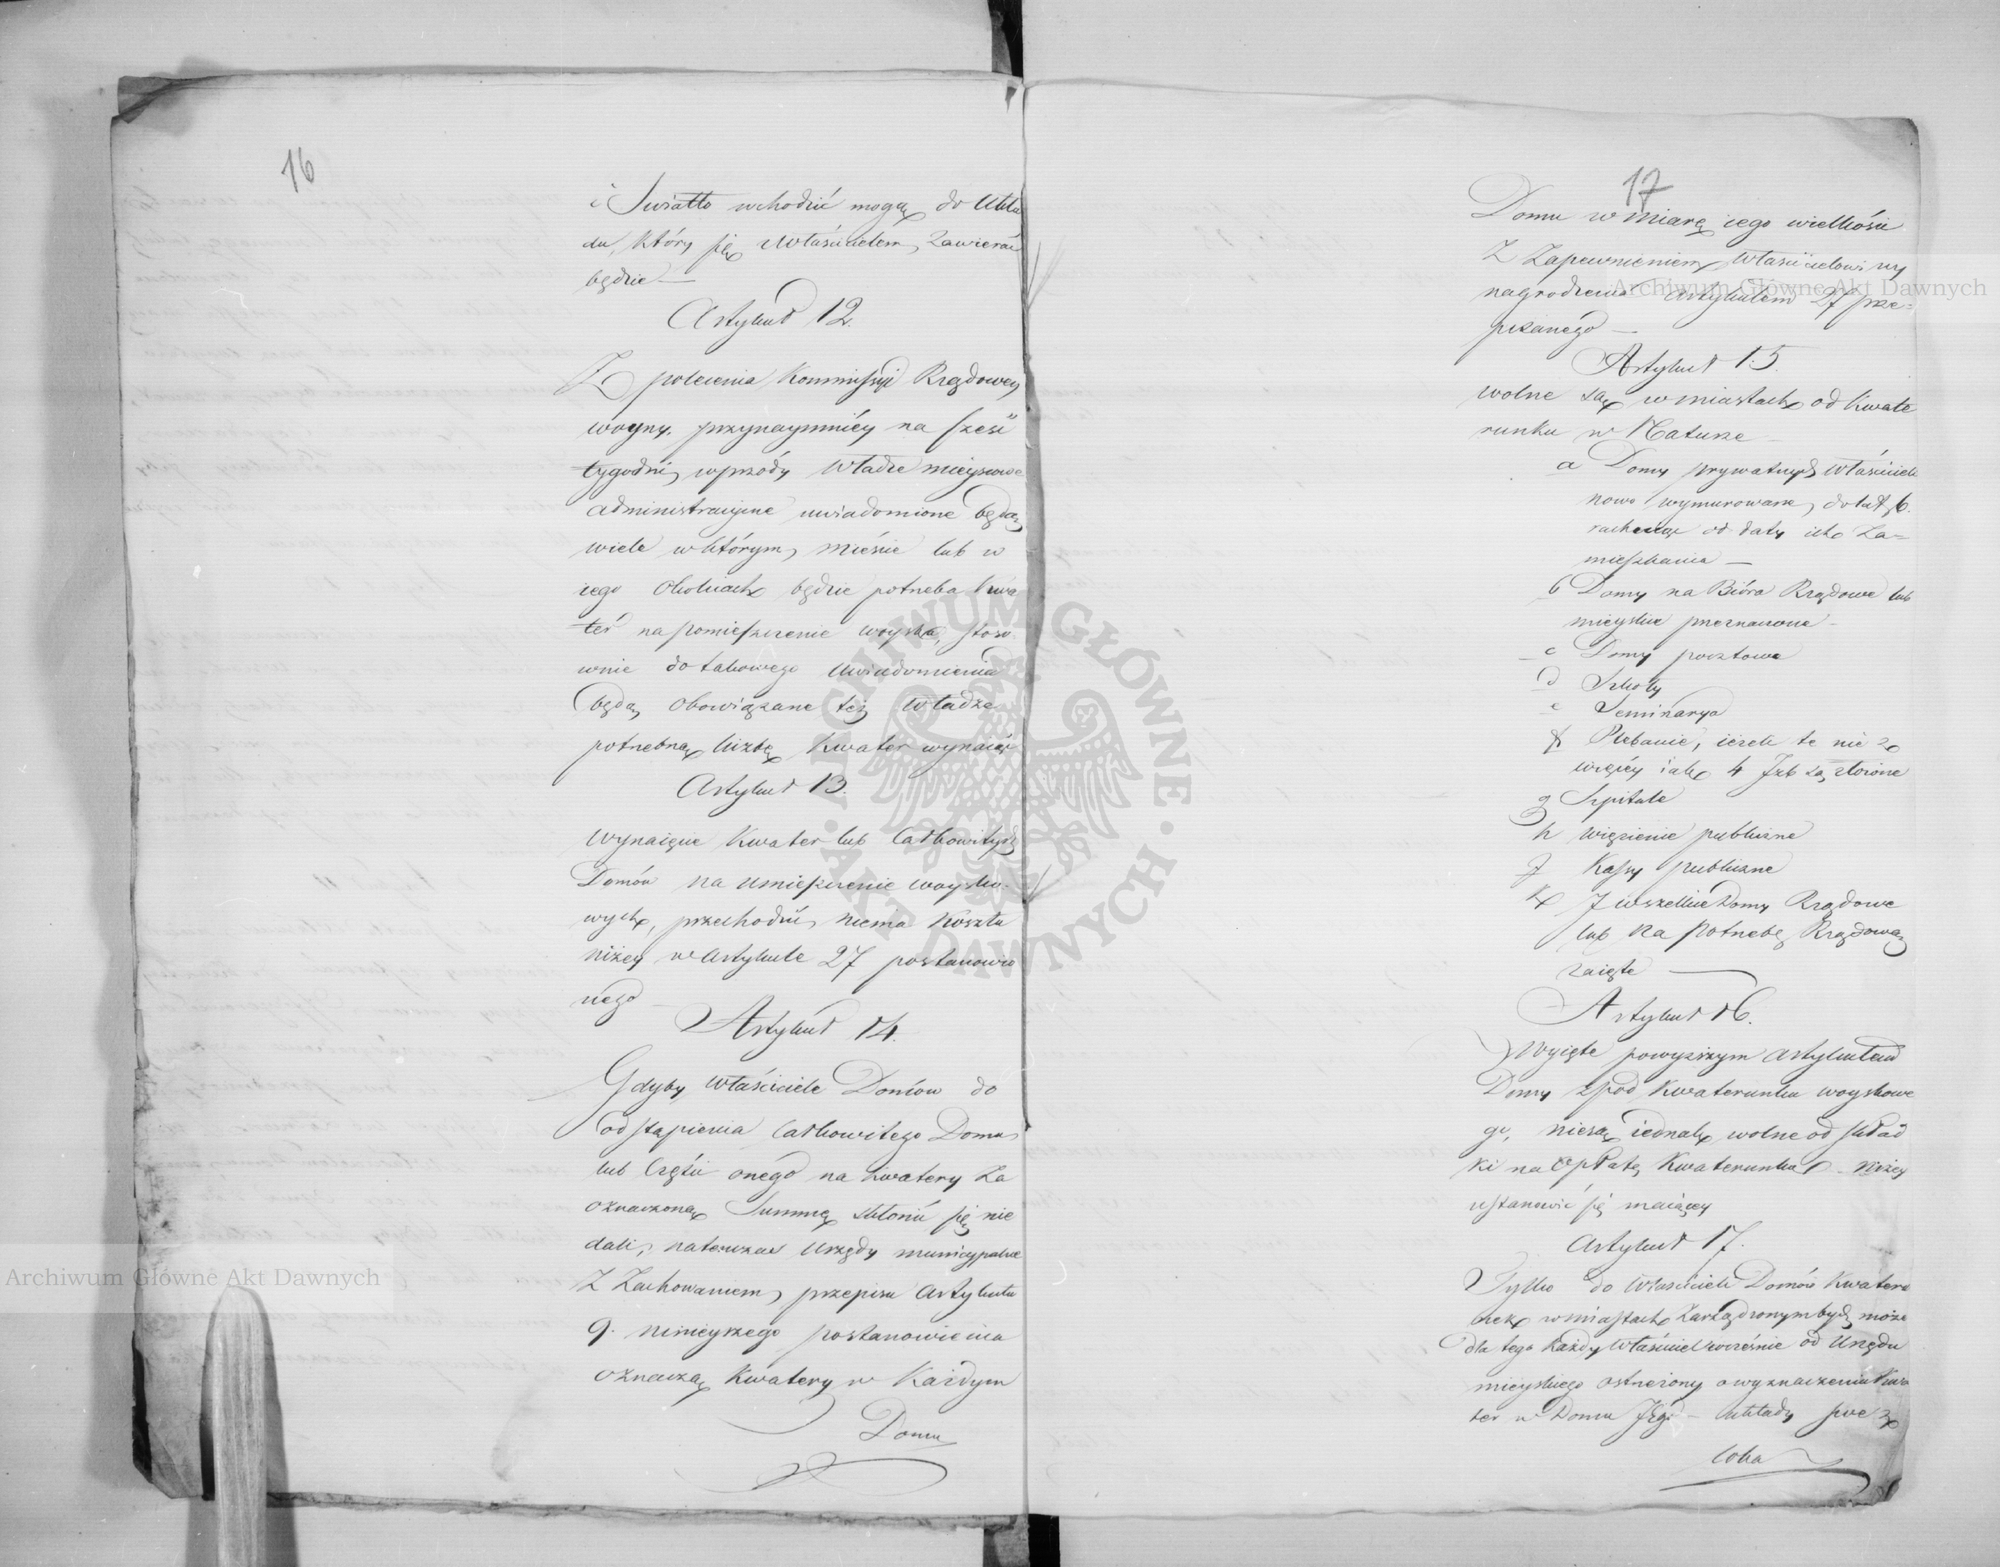 16
i Swiatło wchodzić mogą do Ukła
du, który się z Właścicielem zawierać
będzie —
Artykuł 12.
Z polecenia Kommissyi Rządowey
woyny, przynaymniéy na sześć
tygodni wprzódy Władze mieyscowe
administracyine uwiadomione będą
wiele w którym mieście lub w
iego okolicach będzie potrzeba kwa
ter na pomieszczenie woyska, stoso
wnie do takowego uwiadomienia
będą obowiązane też Władze
potrzebną liczbę Kwater wynaiąć
Artykuł 13.
Wynaięcie Kwater lub Całkowitych
Domów na umieszczenie woysko-
wych, przechodzić niema Kosztu
niżey w Artykule 27 postanowio
nego
Artykuł 14.
Gdyby Właściciele Domów do
odstąpienia Całkowitego Domu
lub Części onego na kwatery za
oznaczoną Summę skłonić się nie
dali, natenczas Urzędy municypalne
Z Zachowaniem przepisu Artykułu
9. ninieyszego postanowienia
oznaczą Kwatery w Każdym
Domu
17
Domu w miarę iego wielkości
Z Zapewnieniem Właścicielowi wy
nagrodzenia Artykułem 27 prze=
pisanego —
Artykuł 15.
wolne są w miastach od Kwate
runku w Naturze
a Domy prywatnych Właścicieli
nowo wymurowane, do lat 6.
rachuiąc od daty ich Za=
mieszkania —
b Domy na Bióra Rządowe lub
mieyskie przeznaczone -
c Domy pocztowe
d Szkoły
e Seminarya
f Plebanie, ieżeli te nie z
więcéy iak 4 Izb są złożone
g Szpitale
h więzienie publiczne
j Kassy publiczne
k I wszelkie Domy Rządowe
lub na potrzebę Rządową
zaięte —
Artykuł 16.
Wyięte powyższym artykułem
Domy z pod Kwaterunku woyskowe
go, niesą iednak wolne od skład
ki na opłatę Kwaterunku niżey
ustanowić się maiącey
Artykuł 17.
Tylko do Właścicieli Domów Kwateru
nek w miastach Zarządzonym być może
dla tego Każdy Właściciel wcześnie od Urzędu
mieyskiego ostrzeżony o wyznaczeniu Kwa
ter w Domu Jego - układy
Archiwum Główne Akt Dawnych
Archiwum Główne Akt Dawnych
ARCHIWUM GŁÓWNE · AKT DAWNYCH ·